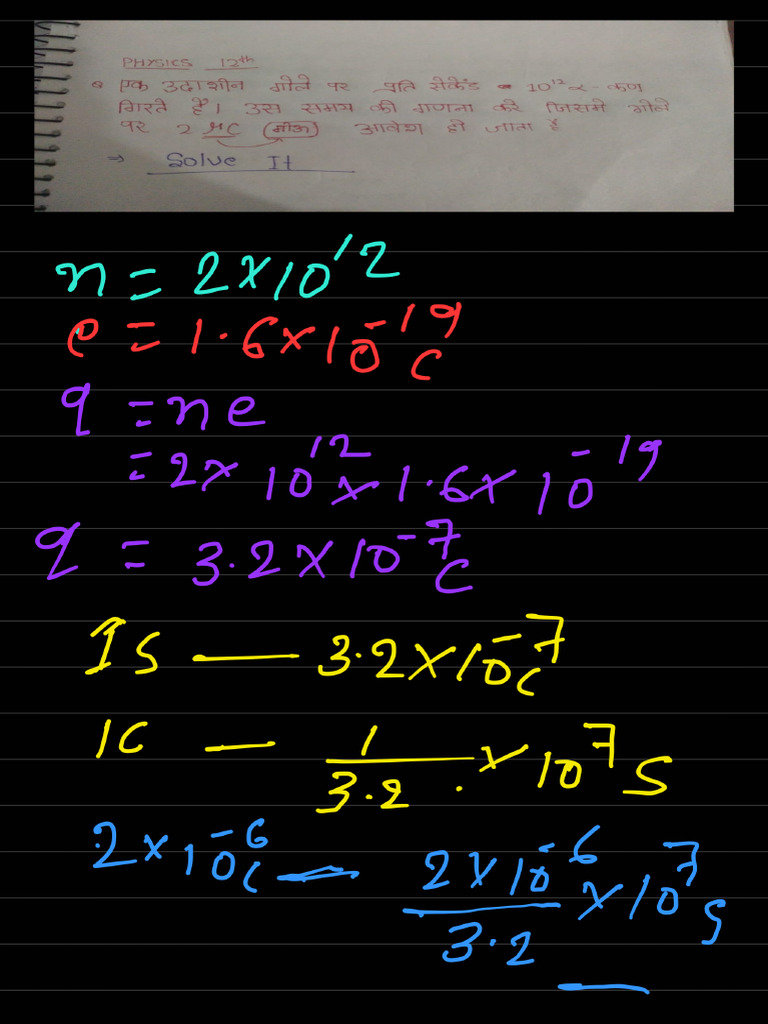 PHYSICS 12th
एक उदाशीन गोले पर प्रति सेकेंड 10¹² α- कण
गिरते है। उस समय की गणना करे जिसमे गोले
पर 2 μC आवेश हो जाता है
⇒ Solve It
n = 2×10¹²
e = 1.6×10⁻¹⁹ C
q = ne
= 2× 10¹² × 1.6× 10⁻¹⁹
q = 3.2×10⁻⁷ C
1S — 3.2×10⁻⁷ C
1C — 1/3.2 × 10⁷ S
2×10⁻⁶ C — 2×10⁻⁶/3.2 × 10⁷ S